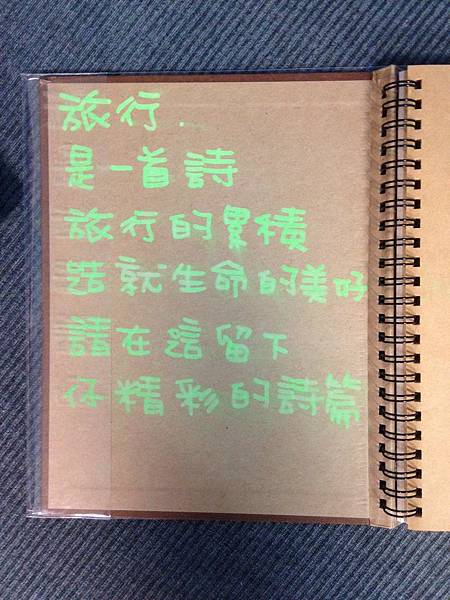 旅行...
是一首詩
旅行的累積
造就生命的美好
請在這留下
你精彩的詩篇